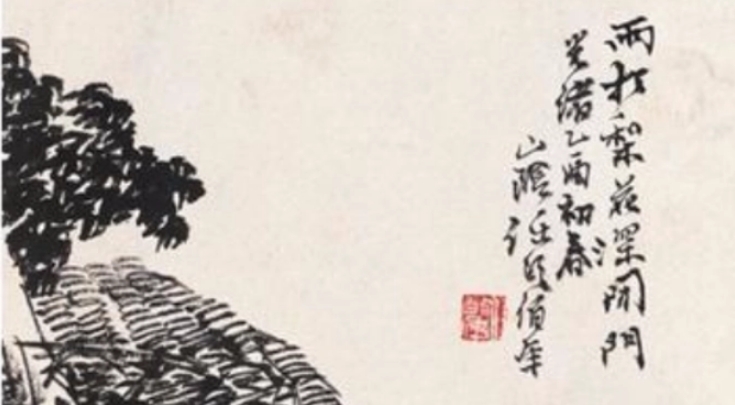 雨打梨花深閉門
光緒乙酉初春
山陰任頤伯年